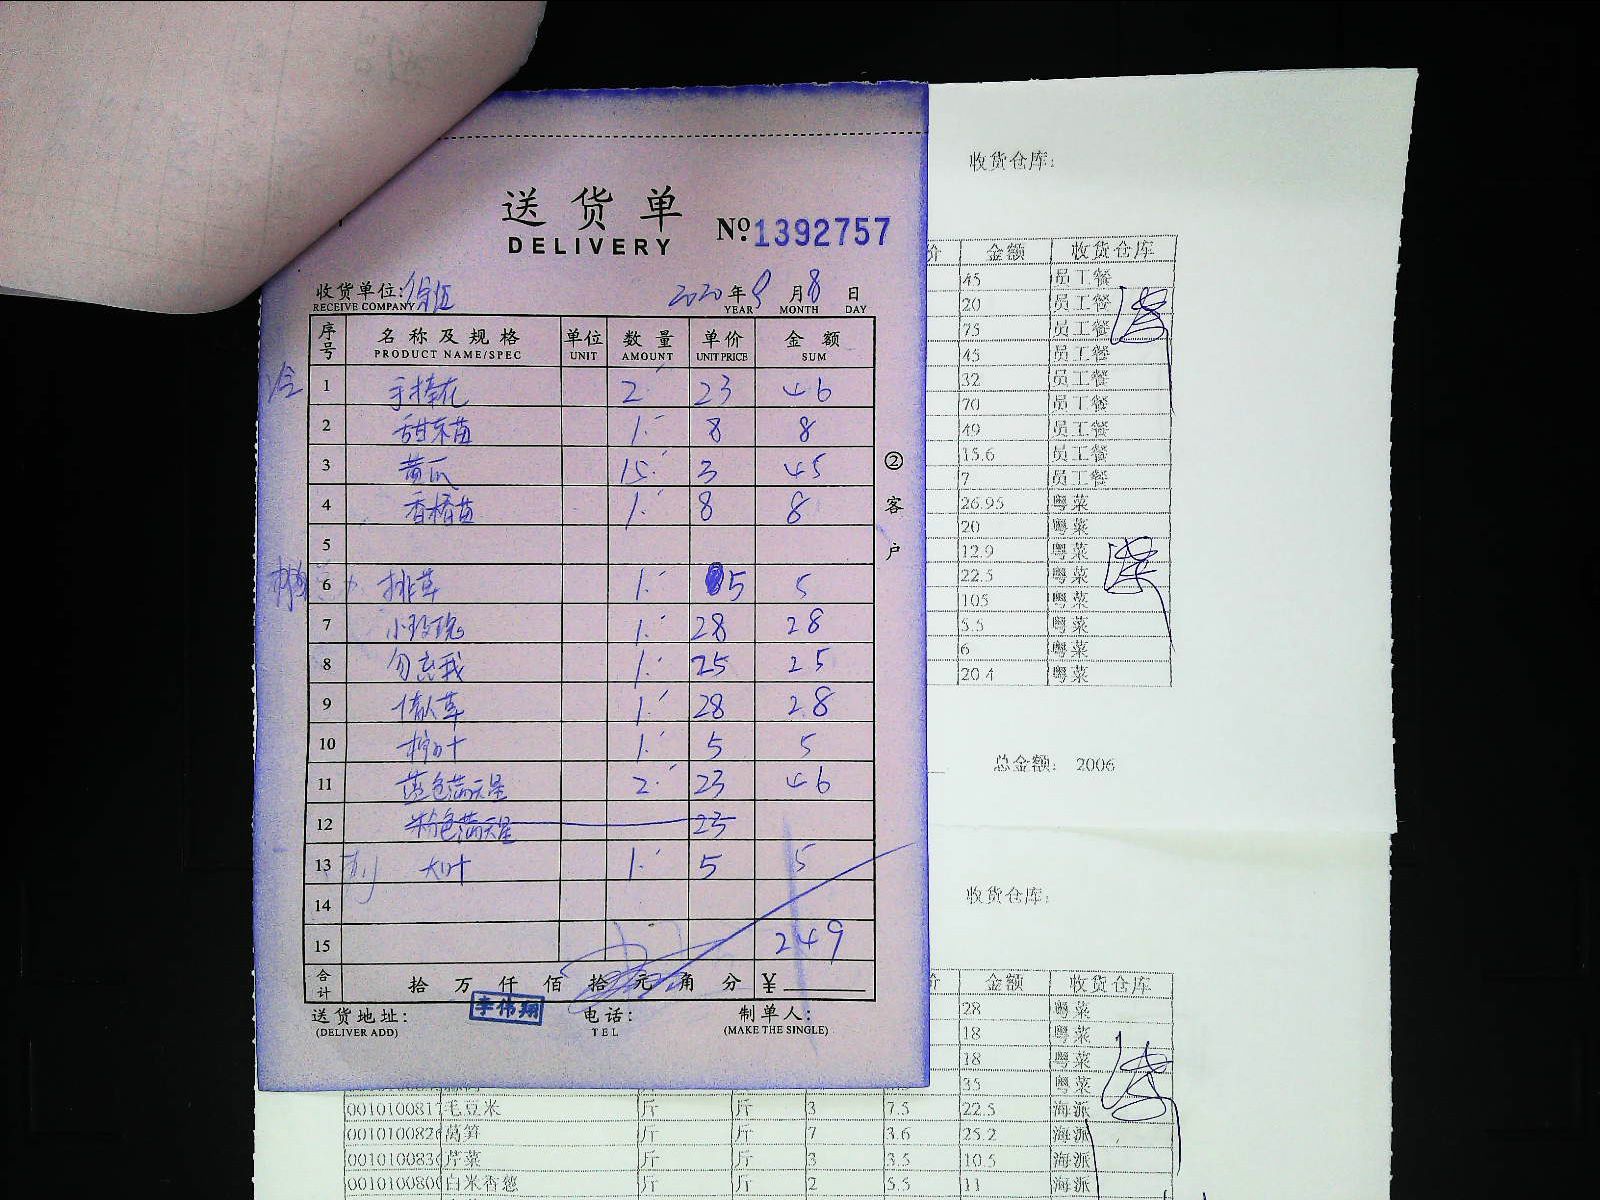 送货单
DELIVERY
№ 1392757
收货单位: 徐汇
RECEIVE COMPANY
2020年9月8日
YEAR MONTH DAY
序号 名称及规格 单位 数量 单价 金额
PRODUCT NAME/SPEC UNIT AMOUNT UNIT PRICE SUM
冷 1 手捧花 2 23 46
2 甜菜苗 1 8 8
3 黄瓜 15 3 45
4 香椿苗 1 8 8
5
6 排草 1 5 5
7 小玫瑰 1 28 28
8 勿忘我 1 25 25
9 情人草 1 28 28
10 5 5
11 蓝色满天星 2 23 46
12 粉色满天星 23
13 大叶 1 5 5
14
15 249
合计 拾万仟佰拾元角分 ¥
②客户
送货地址: 电话: 制单人:
(DELIVER ADD) TEL (MAKE THE SINGLE)
李伟翔
收货仓库:
价 金额 收货仓库
45 员工餐
20 员工餐
75 员工餐
45 员工餐
32 员工餐
70 员工餐
49 员工餐
15.6 员工餐
7 员工餐
26.95 粤菜
20 粤菜
12.9 粤菜
22.5 粤菜
105 粤菜
5.5 粤菜
6 粤菜
20.4 粤菜
总金额: 2006
收货仓库:
价 金额 收货仓库
28 粤菜
18 粤菜
18 粤菜
35 粤菜
001010081 毛豆米 斤 斤 3 7.5 22.5 海派
001010082 莴笋 斤 斤 7 3.6 25.2 海派
001010083 芹菜 斤 斤 3 3.5 10.5 海派
001010080 白米香葱 斤 斤 2 5.5 11 海派